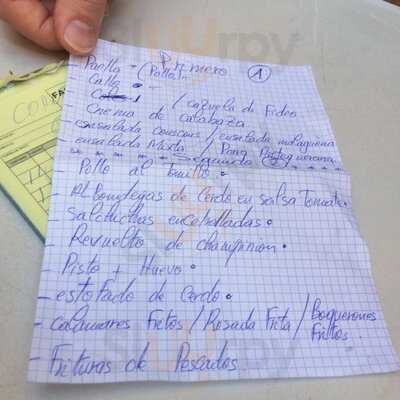 Primero ①
Paella - (Pollo)
- Callo -
/ cazuela de Fideo
- Crema de calabaza
- ensalada Couscous / ensalada malagueña
- ensalada Mixta /
Segundo ②
- Pollo al
- Al Bondegas de Cerdo en salsa Tomate.
- Salchichas encebolladas.
- Revuelto de champinion.
- Pisto + Huevo.
- estofado de Cerdo.
- calamares Fritos / Rosada Frita / Boquerones Fritos.
- Frituras de Pescados.